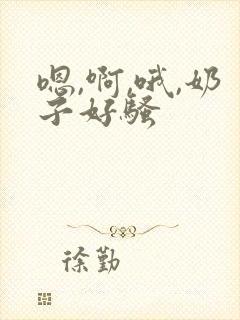 嗯,啊,哦,奶
子好骚
徐勤